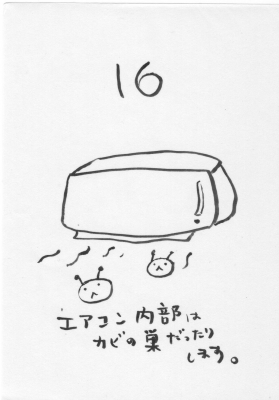 16
エアコン内部は
カビの巣だったり
します。